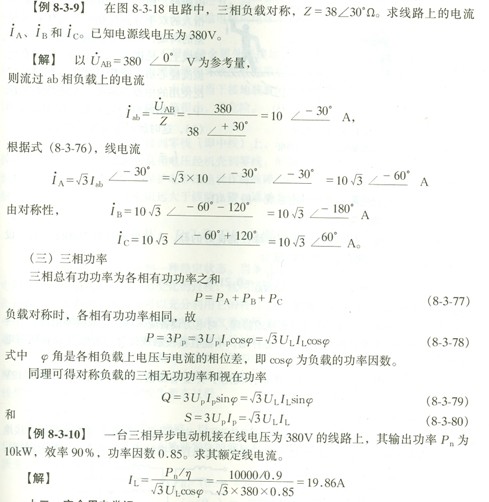 【例 8-3-9】 在图 8-3-18 电路中，三相负载对称，Z = 38∠30°Ω。求线路上的电流
İA、İB 和 İC。已知电源线电压为 380V。
【解】 以 U̇AB = 380 ∠0° V 为参考量，
则流过 ab 相负载上的电流
İab = U̇AB/Z = 380/(38 ∠+30°) = 10 ∠-30° A，
根据式（8-3-76），线电流
İA = √3 İab ∠-30° = √3×10 ∠-30° ∠-30° = 10√3 ∠-60° A
由对称性， İB = 10√3 ∠-60°-120° = 10√3 ∠-180° A
İC = 10√3 ∠-60°+120° = 10√3 ∠60° A。
（三）三相功率
三相总有功功率为各相有功功率之和
P = PA + PB + PC (8-3-77)
负载对称时，各相有功功率相同，故
P = 3Pp = 3UpIpcosφ = √3ULILcosφ (8-3-78)
式中 φ 角是各相负载上电压与电流的相位差，即 cosφ 为负载的功率因数。
同理可得对称负载的三相无功功率和视在功率
Q = 3UpIpsinφ = √3ULILsinφ (8-3-79)
和 S = 3UpIp = √3ULIL (8-3-80)
【例 8-3-10】 一台三相异步电动机接在线电压为 380V 的线路上，其输出功率 Pn 为
10kW，效率 90%，功率因数 0.85。求其额定线电流。
【解】 IL = (Pn/η)/(√3ULcosφ) = (10000/0.9)/(√3×380×0.85) = 19.86A